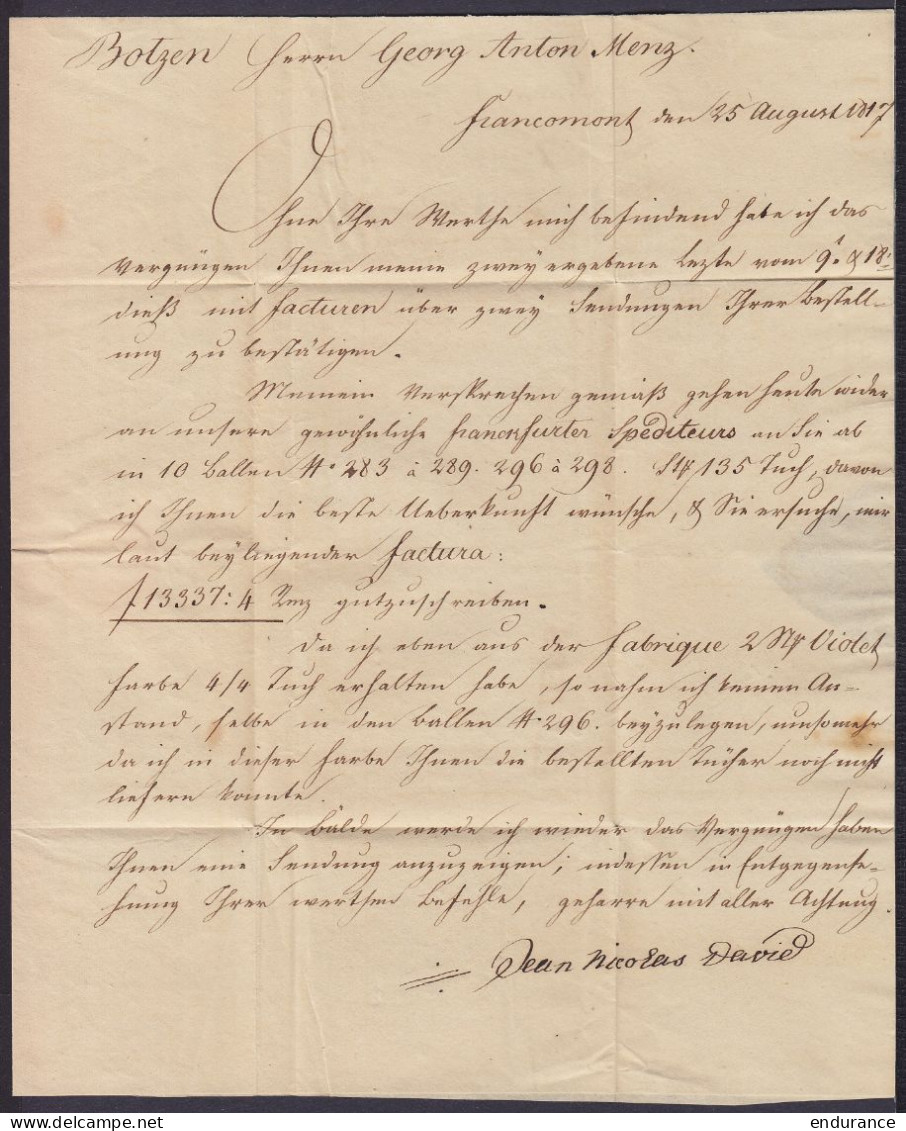 Botzen Herrn Georg Anton Menz.
Francomont den 25 August 1817
Ohne Ihre Werthe mich befindend habe ich das
Vergnügen Ihnen meine zwey ergebene Lezte vom 9t. & 18t.
dieß mit Facturen über zwey Sendungen Ihrer Bestell-
ung zu bestätigen.
Meinem Versprechen gemäß gehen heute wider
an unsere gewöhnliche Franckfurter Spediteurs an Sie ab
in 10 Ballen # 283 à 289. 296 à 298. Stk 135 Tuch, davon
ich Ihnen die beste Ueberkunft wünsche, & Sie ersuche, mir
laut beyliegender Factura:
f 13337: 4 gutzuschreiben.
Da ich eben aus der Fabrique 2 Stk Violet
Farbe 4/4 Tuch erhalten habe, so nahm ich keinen An-
stand, selbe in den Ballen # 296. beyzulegen, umsomehr
da ich in dieser Farbe Ihnen die bestellten Tücher noch nicht
liefern konnte.
In Bälde werde ich wieder das Vergnügen haben
Ihnen eine Sendung anzuzeigen; indessen in Entgegense-
hung Ihrer werthen Befehle, geharre mit aller Achtung.
Jean Nicolas David
endurance